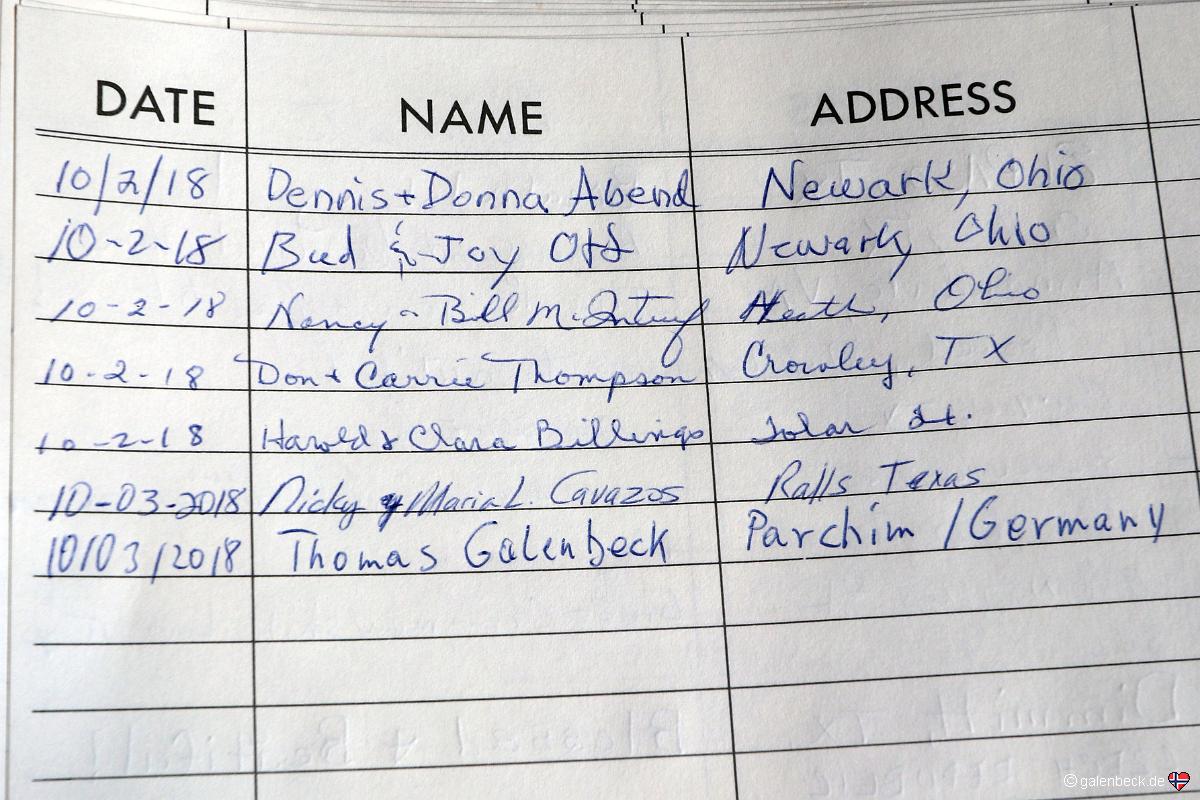 DATE NAME ADDRESS
10/2/18 Dennis + Donna Abend Newark, Ohio
10-2-18 Bud & Joy Ott Newark, Ohio
10-2-18 Nancy - Bill Heath, Ohio
10-2-18 Don + Carrie Thompson Crowley, TX
10-2-18 Harold & Clara Billings
10-03-2018 Nicky y Maria L. Cavazos Ralls Texas
10/03/2018 Thomas Galenbeck Parchim / Germany
© galenbeck.de